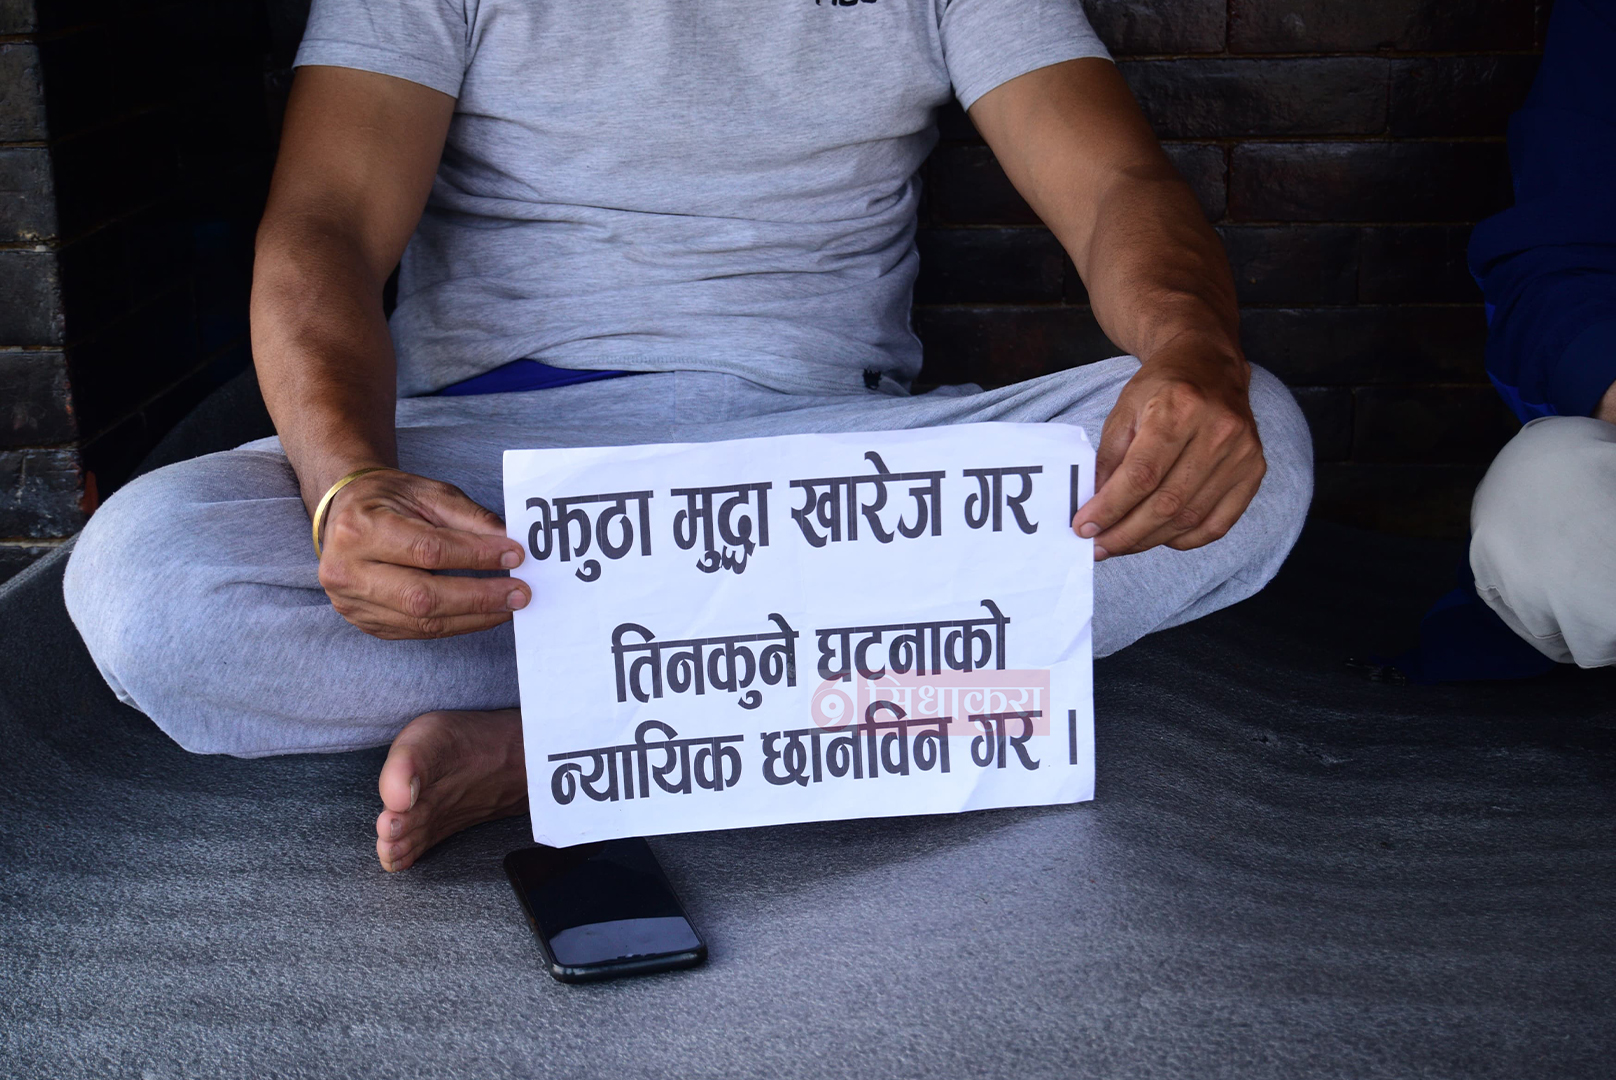 झुठा मुद्दा खारेज गर ।
तिनकुने घटनाको
सिधाकुरा
न्यायिक छानविन गर ।